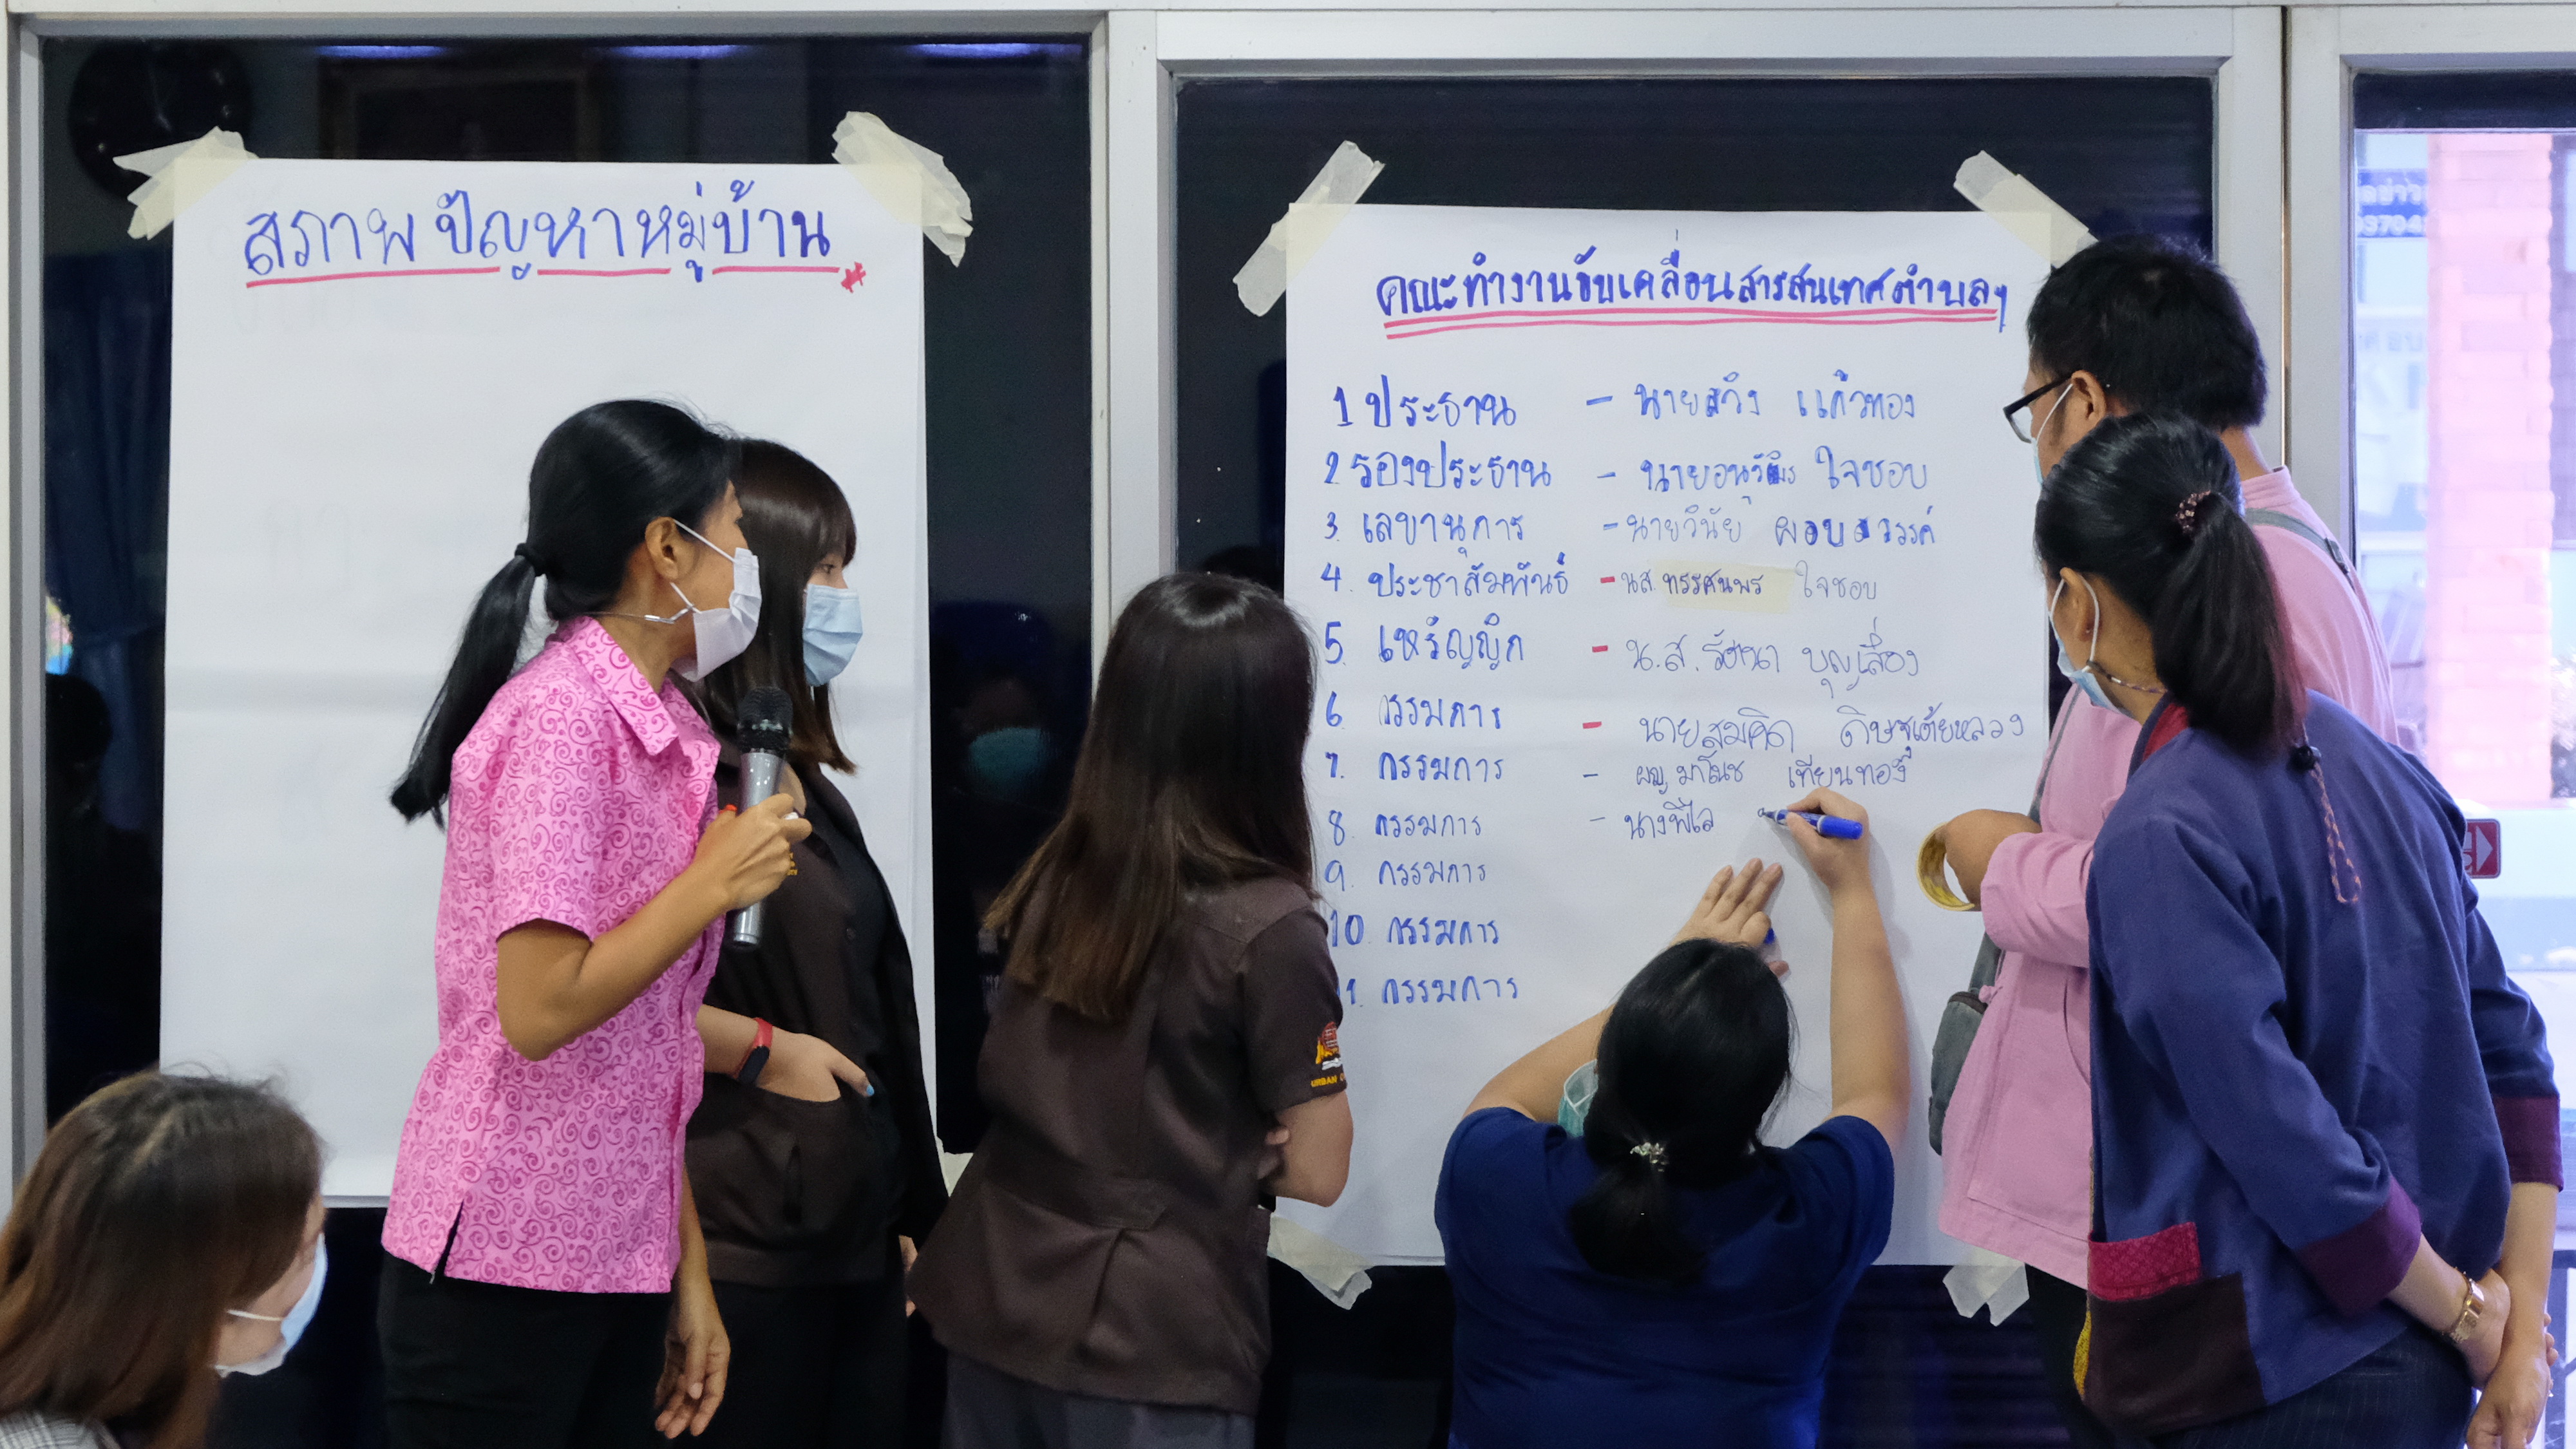 สภาพปัญหาหมู่บ้าน
คณะทำงานขับเคลื่อนสารสนเทศตำบลฯ
1 ประธาน - นายสวิง แก้วทอง
2 รองประธาน - ใจชอบ
3. เลขานุการ - นายวินัย ผอบสวรรค์
4. ประชาสัมพันธ์ - นส. ทรรศนพร ใจชอบ
5. เหรัญญิก - น.ส. บุญเลื่อง
6 กรรมการ - นายสมคิด
7. กรรมการ - ผญ. มาโนช เทียนทอง
8. กรรมการ - นางพิไล
9. กรรมการ
10 กรรมการ
11. กรรมการ
URBAN